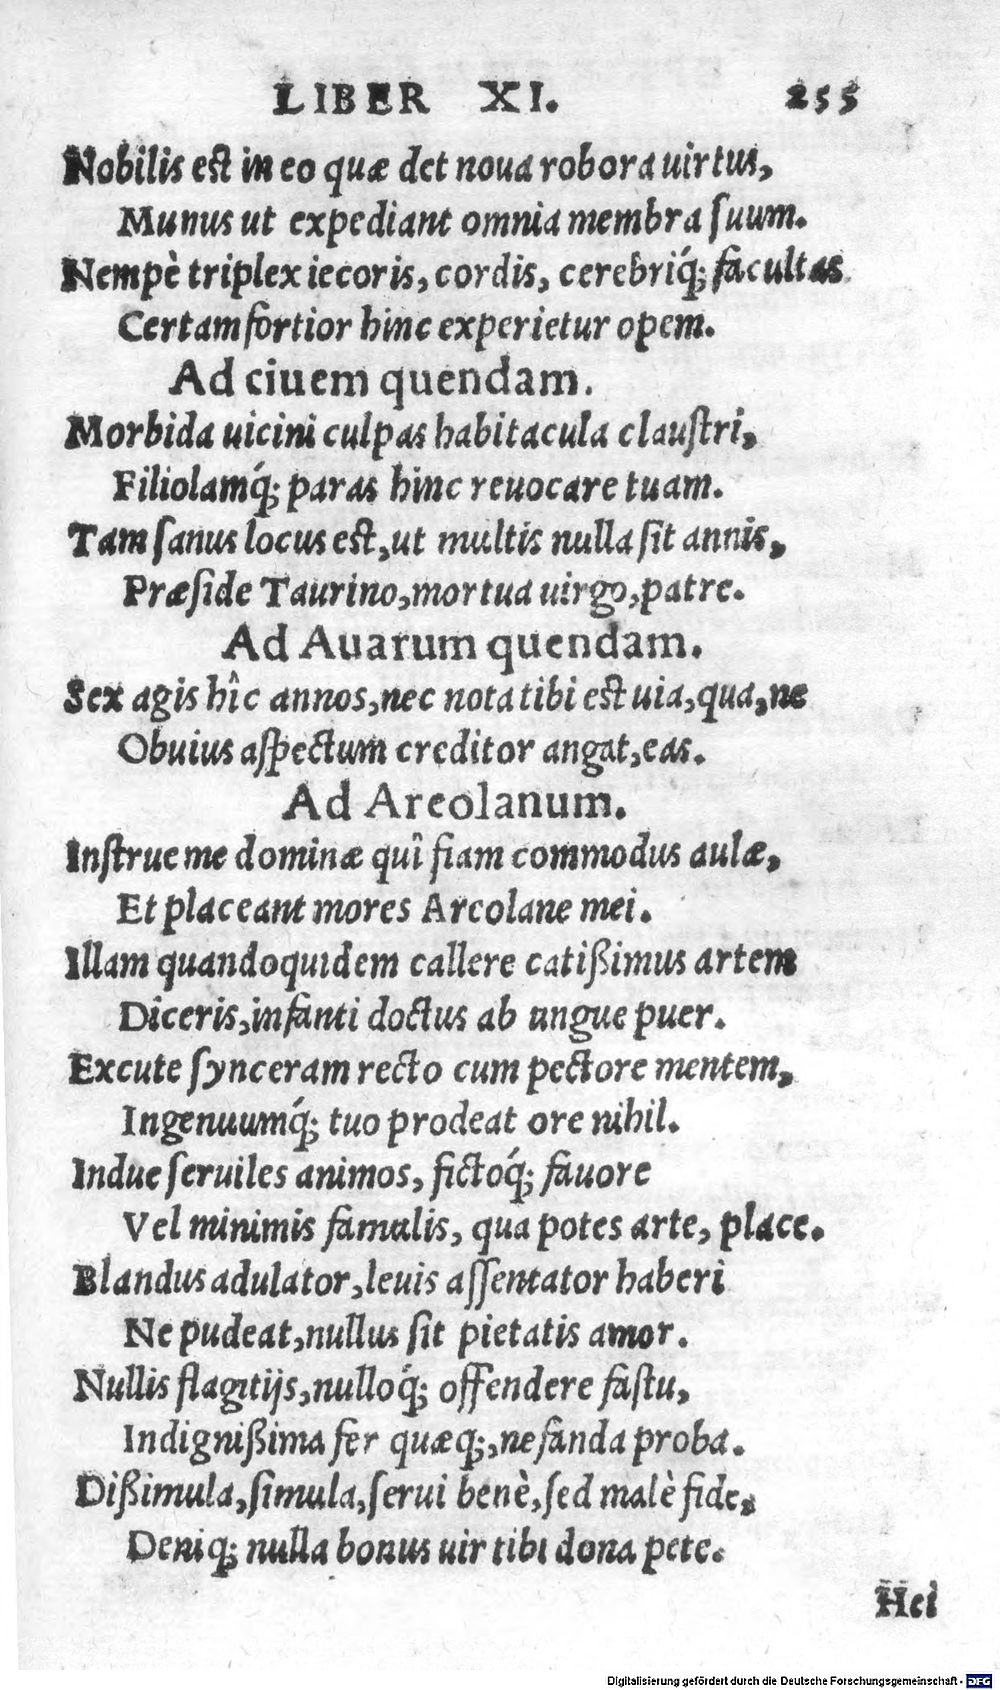 LIBER XI. 255
Nobilis est in eo quæ det noua robora uirtus,
Munus ut expediant omnia membra ſuum.
Nempè triplex iecoris, cordis, cerebriq́; facultas
Certam fortior hinc experietur opem.
Ad ciuem quendam.
Morbida uicini culpas habitacula clauſtri,
Filiolamq́; paras hinc reuocare tuam.
Tam ſanus locus est, ut multis nulla ſit annis,
Præſide Taurino, mortua uirgo, patre.
Ad Auarum quendam.
Sex agis hîc annos, nec nota tibi est uia, qua, ne
Obuius aſpectum creditor angat, eas.
Ad Arcolanum.
Inſtrue me dominæ quî fiam commodus aulæ,
Et placeant mores Arcolane mei.
Illam quandoquidem callere catißimus artem
Diceris, infanti doctus ab ungue puer.
Excute ſynceram recto cum pectore mentem,
Ingenuumq́; tuo prodeat ore nihil.
Indue ſeruiles animos, fictoq́; fauore
Vel minimis famulis, qua potes arte, place.
Blandus adulator, leuis aſſentator haberi
Ne pudeat, nullus ſit pietatis amor.
Nullis flagitijs, nulloq́; offendere faſtu,
Indignißima fer quæq;, nefanda proba.
Dißimula, ſimula, ſerui benè, ſed malè fide,
Deniq; nulla bonus uir tibi dona pete.
Hei
Digitalisierung gefördert durch die Deutsche Forschungsgemeinschaft - DFG